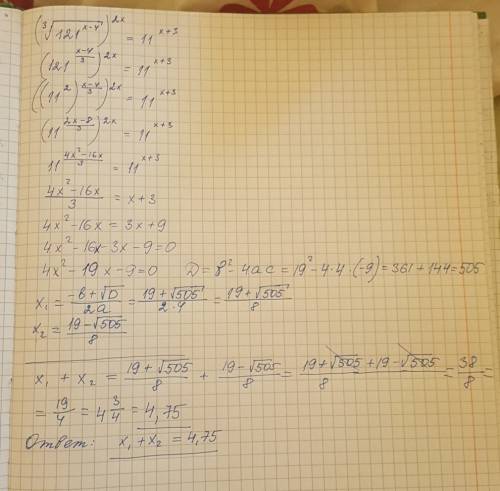 (∛(121^(x-4)))^(2x) = 11^(x+3)
(121^((x-4)/3))^(2x) = 11^(x+3)
((11^2)^((x-4)/3))^(2x) = 11^(x+3)
(11^((2x-8)/3))^(2x) = 11^(x+3)
11^((4x^2-16x)/3) = 11^(x+3)
(4x^2-16x)/3 = x+3
4x^2-16x = 3x+9
4x^2-16x-3x-9=0
4x^2-19x-9=0 D=b^2-4ac=19^2-4·4·(-9)=361+144=505
x₁ = (-b+√D)/2a = (19+√505)/(2·4) = (19+√505)/8
x₂ = (19-√505)/8
x₁ + x₂ = (19+√505)/8 + (19-√505)/8 = (19+√505+19-√505)/8 = 38/8 =
= 19/4 = 4 3/4 = 4,75
Ответ: x₁+x₂ = 4,75